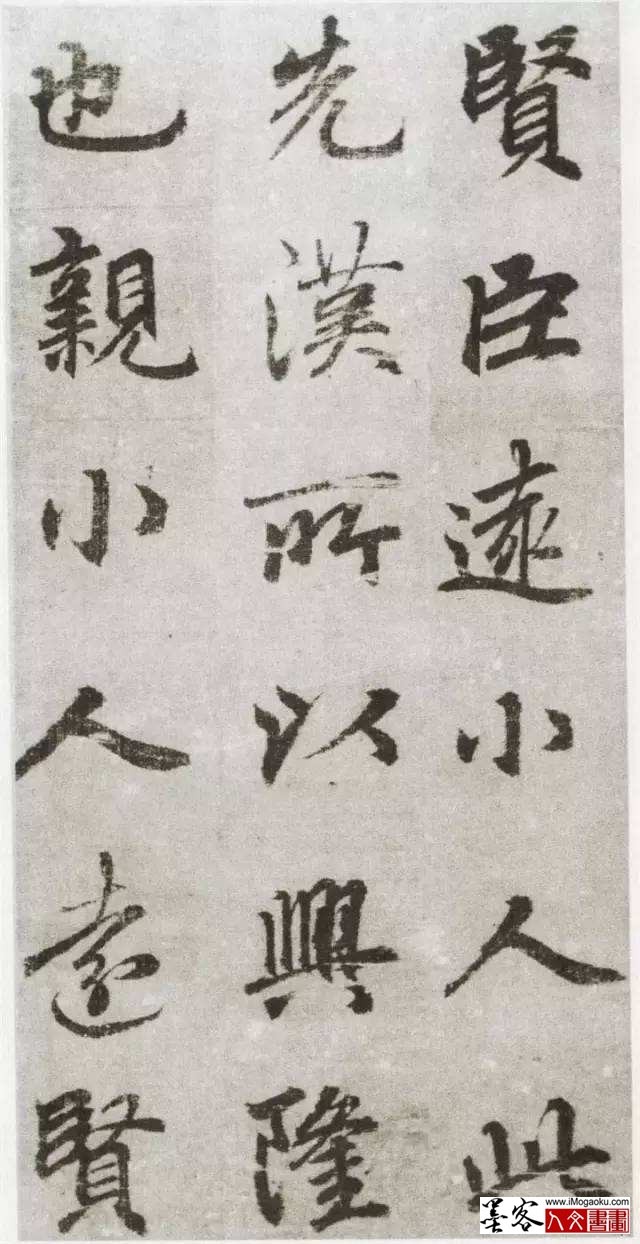 賢臣遠小人此
先漢所以興隆
也親小人遠賢
墨客 www.iMogaoku.com
人文書畫